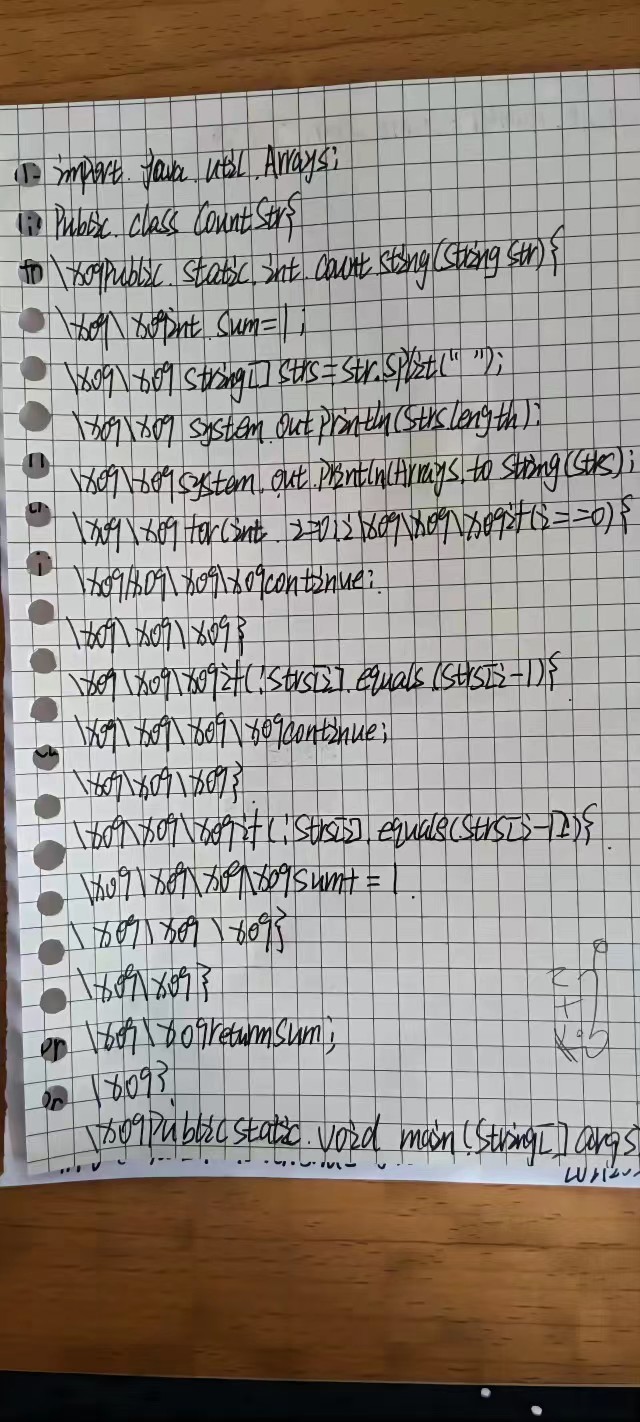 import. java. util. Arrays;
Public. class CountStr{
\x09Public. static. int. Count. Sting(String Str){
\x09\x09int. Sum=1;
\x09\x09 String[] Strs=Str.Split(" ");
\x09\x09 system. out Println(Strs length);
\x09\x09system. out. Println(Arrays. to String(Strs);
\x09\x09 for(int. i=0;i\x09\x09\x09if(i==0){
\x09/x09\x09\x09continue;
\x09\x09\x09}
\x09\x09\x09if(!Strs[i]. equals(Strs[i-1){
\x09\x09\x09\x09continue;
\x09\x09\x09}
\x09\x09\x09if(!Strs[i]. equals(Strs[i-1]){
\x09\x09\x09\x09sum+=1
\x09\x09\x09}
\x09\x09}
\x09\x09returnSum;
\x09}
\x09Public static. void main(String[] args